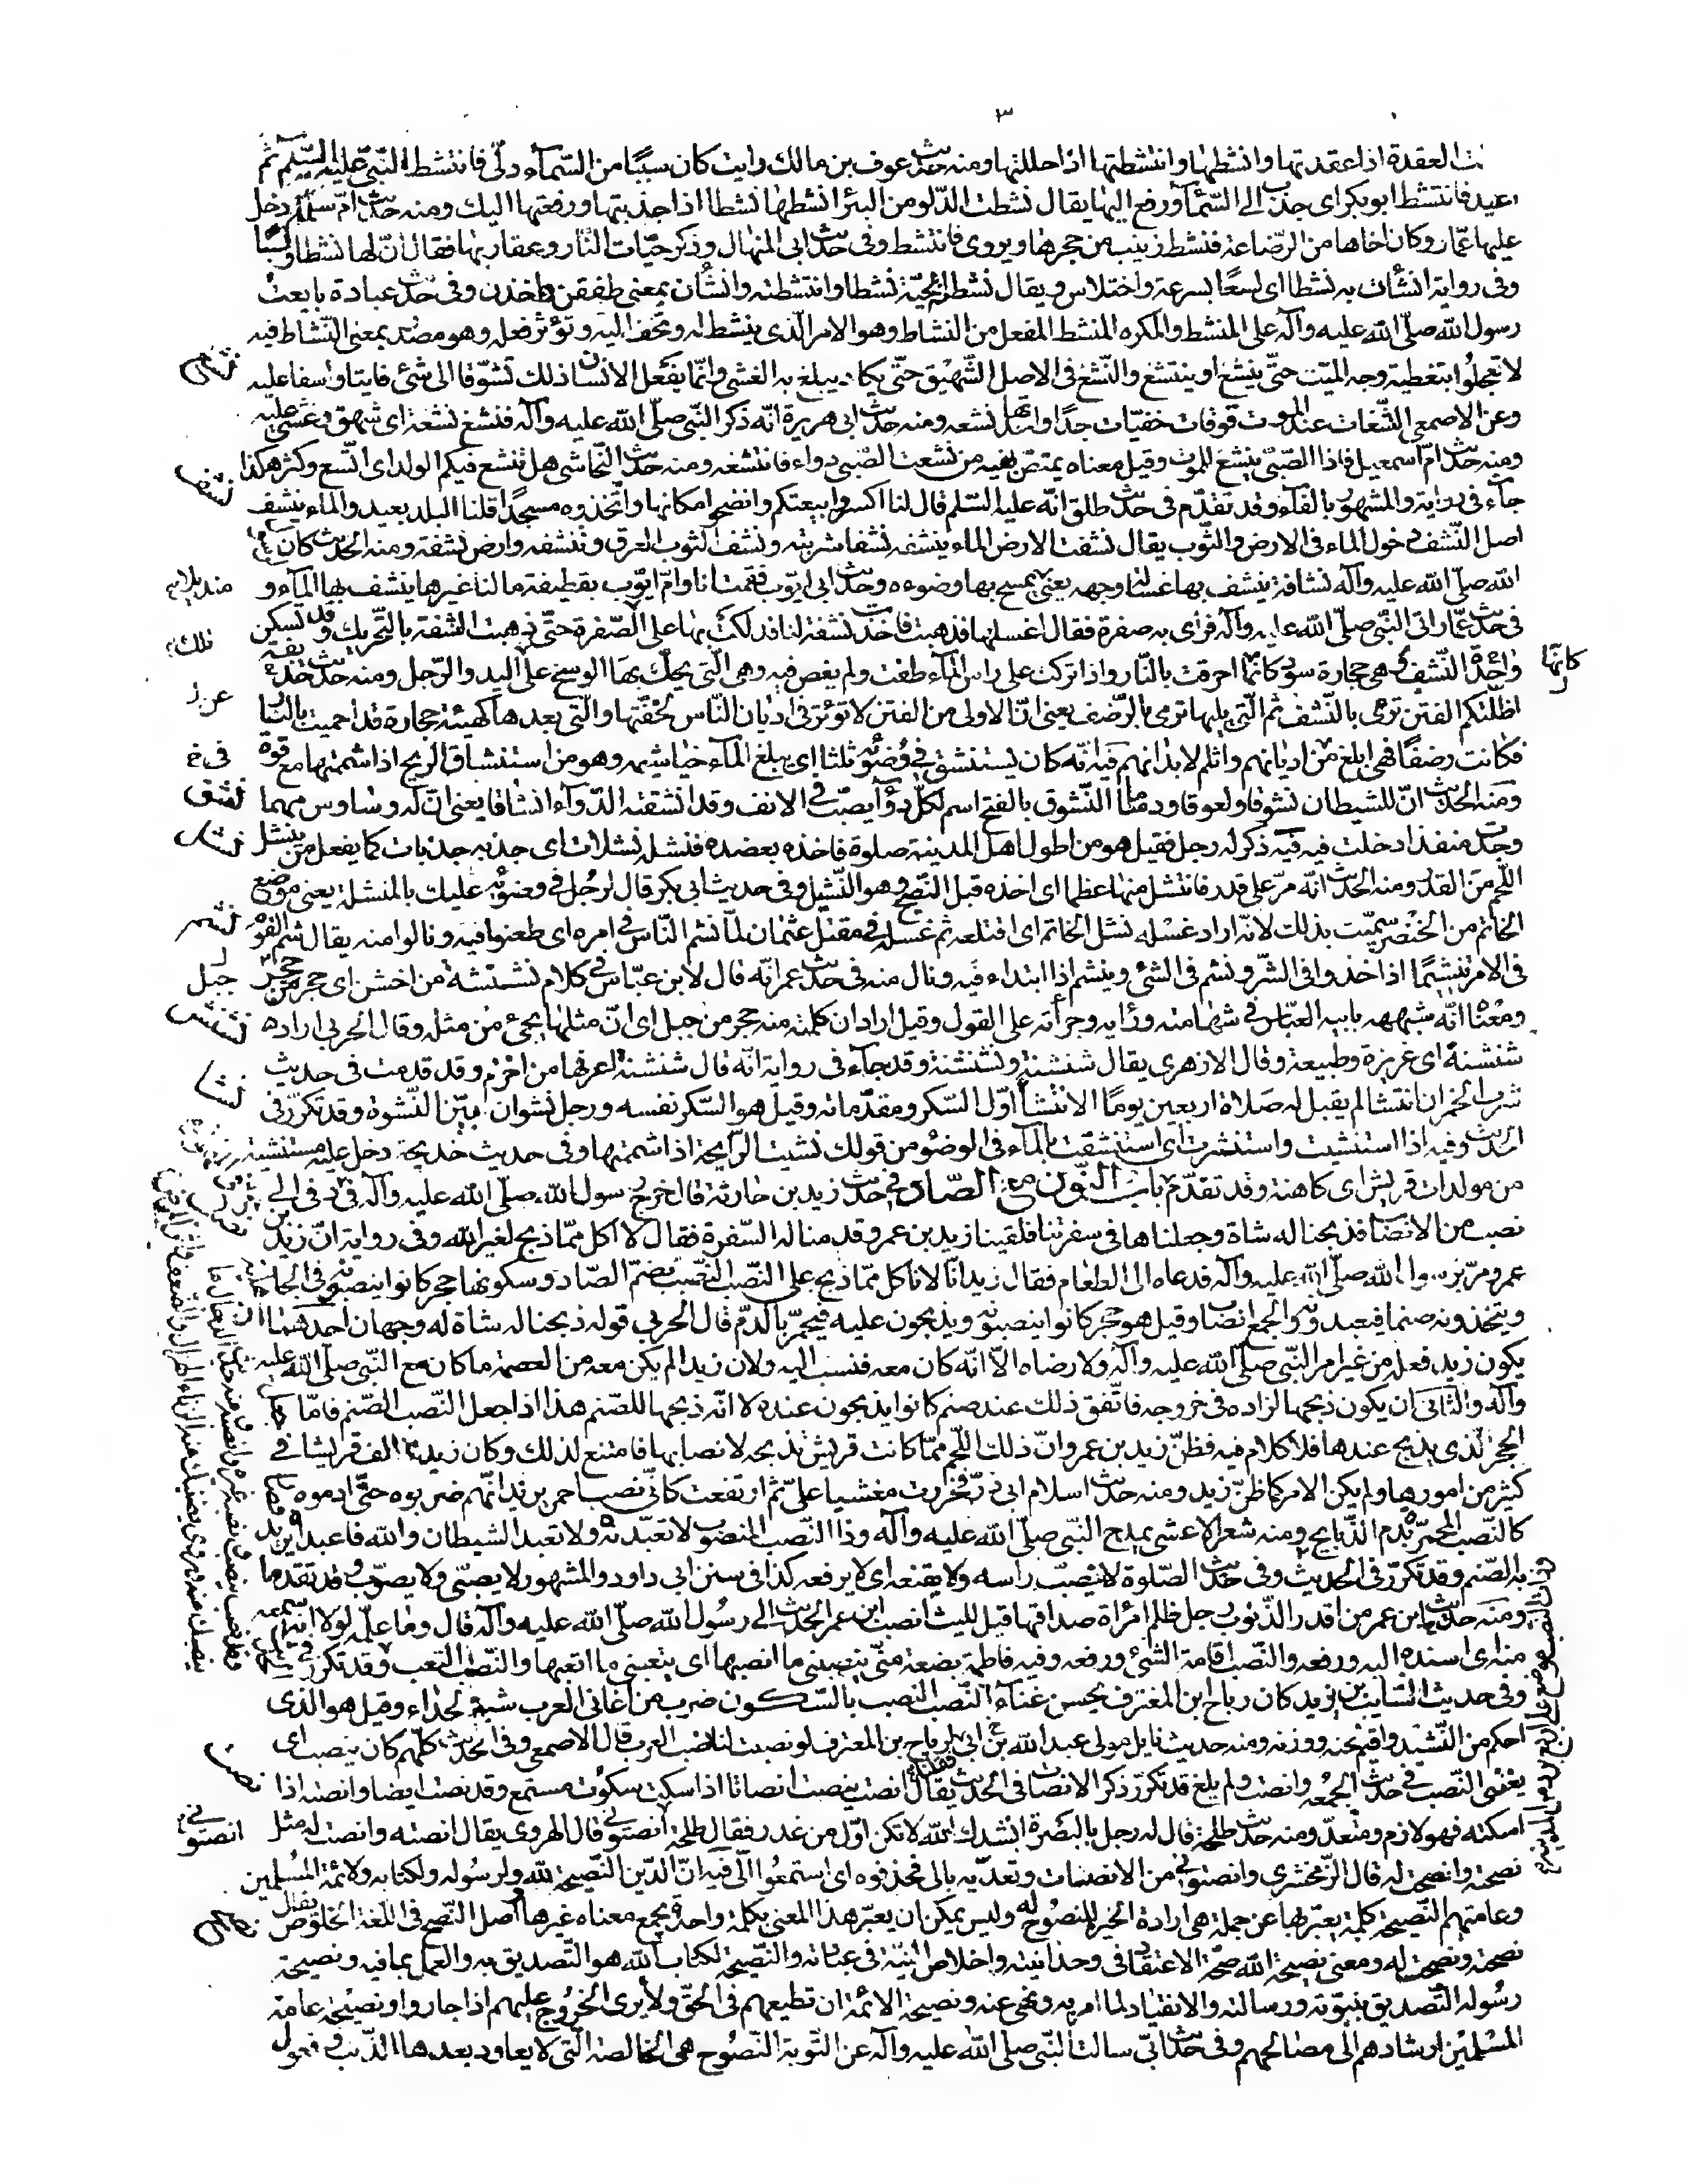 ٣
العقدة اذا عقدتها وانشطها وانتشطتها اذا حللتها ومنه حديث عوف بن مالك رايت كان سببا من السّمآء دلّى فانتشط النّبىّ عليه السّلم ثم
اعيد فانتشط ابو بكر اى جذب الى السّمآء ورفع اليها يقال نشطت الدّلو من البئر انشطها نشطا اذا جذبتها ورفعتها اليك ومنه حديث امّ سلمة دخل
عليها عمّار وكان اخاها من الرّضاعة فنشط زينب من حجرها ويروى فانتشط وفى حديث ابى المنهال وذكر حيّات النّار وعقاربها فقال انّ لها نشطا ولسبا
وفى رواية انشأن به نشطا اى لسعًا بسرعة واختلاس ويقال نشطته الحيّة نشطا وانتشطته وانشأن بمعنى طفقن واخذن وفى حديث عبادة بايعت
رسول الله صلّى الله عليه وآله على المنشط والمكره المنشط المفعل من النشاط وهو الامر الّذى ينشط له ويخف اليه ويؤثر فعله وهو مصدر بمعنى النّشاط فيه
لا تعجلوا بتغطية وجه الميّت حتّى ينشغ او يتنشغ والنّشغ فى الاصل الشّهيق حتّى يكاد يبلغ به الغشى وانّما يفعل الانسان ذلك تشوّقا الى شئ فايت واسفا عليه
نشغ
وعن الاصمعى النّشغات عند الموت فوقات خفيّات جدّا واحدتها نشغه ومنه حديث ابى هريرة انّه ذكر النّبى صلّى الله عليه وآله فنشغ نشغة اى شهق وغشى عليه
ومنه حديث امّ اسمعيل فاذا الصّبىّ ينشغ للموت وقيل معناه يمتصّ بفيه من نشغت الصّبى دواء فانتشغه ومنه حديث النّجاشى هل تنشغ فيكم الولد اى اتّسع وكثر هكذا
نشف
جآء فى رواية والمشهور بالفآء وقد تقدّم فى حديث طلق انّه عليه السّلم قال لنا اكسروا بيعتكم وانضحوا مكانها واتّخذوه مسجدًا قلنا البلد بعيد والماء ينشف
اصل النّشف دخول الماء فى الارض والثّوب يقال نشفت الارض الماء ينشفه نشفا شربته ونشف الثوب العرق وتنشفه وارض نشفة ومنه الحديث كان
الله صلّى الله عليه وآله نشّافة ينشف بها غسالة وجهه يعنى يمسح بها وضوءه وحديث ابى ايّوب فقمت انا وامّ ايّوب بقطيفة مالنا غيرها ينشف بها المآء و
فى حديث عمّار اتى النّبى صلّى الله عليه وآله فراى به صفرة فقال اغسلها فذهبت فاخذت نشفة لنا فدلكت بها على الصّفرة حتّى ذهبت النّشفة بالتّحريك وقد تسكن
واحدة النّشف وهى حجارة سود كانّها احرقت بالنّار واذا تركت على راس المآء طفت ولم يغص فيه وهى الّتى يحكّ بها الوسخ على اليد والرّجل ومنه حديث حذيفة
كانّها
اظلّتكم الفتن ترمى بالنّشف ثم الّتى يليها ترمى بالرّضف يعنى انّ الاولى من الفتن لا تؤثر فى اديان النّاس لخفّتها والّتى بعدها كهيئة حجارة قد احميت بالنّار
فكانت رضفًا فهى ابلغ من اديانهم واثلم لابدانهم فيه انّه كان يستنشق فى وضوئه ثلثا اى يبلغ المآء خياشيمه وهو من استنشاق الريح اذا شممتها مع قوة
ومنه الحديث انّ للشيطان نشوقا ولعوقا ودساما النّشوق بالفتح اسم لكلّ دوآء يصبّ فى الانف وقد انشقته الدّوآء انشاقا يعنى انّ له وساوس مهما
نشق
وجدت منفذا دخلت فيه فيه ذكر له رجل فقيل هو من اطول اهل المدينة صلوة فاخذه بعضده فنشله نشلات اى جذبه جذبات كما يفعل من ينشل
نشل
اللّحم من القدر ومنه الحديث انّه مرّ على قدر فانتشل منها عظما اى اخذه قبل النّضج وهو النّشيل وفى حديث ابى بكر قال لرجل فى وضوئه عليك بالمنشلة يعنى موضع
الخاتم من الخنصر سمّيت بذلك لانّه اراد غسله نشل الخاتم اى اقتلعه ثم غسله فى مقتل عثمان لمّا نشم النّاس فى امره اى طعنوا فيه ونالوا منه يقال نشم القوم
نشم
فى الامر تنشيمًا اذا اخذوا فى الشّر ونشم فى الشئ وينشم اذا ابتداء فيه ونال منه فى حديث عمر انّه قال لابن عبّاس فى كلام نشنشة من اخشن اى حجر من
جبل
ومعناه انّه شبهه بابيه العبّاس فى شهامته ورأيه وجرأته على القول وقيل اراد ان كلمته منه حجر من جبل اى انّ مثلها يجئ من مثله وقال الحربى اراده
نشنش
شنشنة اى غريزة وطبيعة وقال الازهرى يقال شنشنة ونشنشة وقد جآء فى رواية انّه قال شنشنة اعرفها من اخزم وقد قدمت فى حديث
نشا
شرب الخمر ان انتشا لم يقبل له صلاة اربعين يومًا الانتشا اوّل السّكر ومقدّماته وقيل هو السّكر نفسه ورجل نشوان بيّن النّشوة وقد تكرّر فى
الحديث وفيه اذا استنشيت واستنثرت اى استنشقت بالمآء فى الوضو من قولك نشيت الرّايحة اذا شممتها وفى حديث خديجة دخل عليه مستنشية
من مولدات قريش اى كاهنة وقد تقدّم باب النّون مع الصّاد فى حديث زيد بن حارثة قال خرج رسول الله صلّى الله عليه وآله مردفى الى
نصب من الانصاب فذبحنا له شاة وجعلناها فى سفرتنا فلقينا زيد بن عمرو قدمنا له السّفرة فقال لا اكل ممّا ذبح لغير الله وفى رواية انّ زيد
عمرو مرّ برسول الله صلّى الله عليه وآله فدعاه الى الطعام فقال زيد انّا لا ناكل ممّا ذبح على النّصب النّصب بضمّ الصّاد وسكونها حجر كانوا ينصبونه فى الجاهلية
ويتّخذونه صنما فيعبدونه والجمع انصاب وقيل هو حجر كانوا ينصبونه ويذبحون عليه فيحمرّ بالدّم قال الحربى قوله ذبحنا له شاة له وجهان احدهما ان
يكون زيد فعله من غير امر النّبى صلّى الله عليه وآله ولا رضاه الّا انّه كان معه فنسب اليه ولان زيدا لم يكن معه من العصمة ما كان مع النّبى صلّى الله عليه
وآله والثّانى ان يكون ذبحها لزاده فى خروجه فاتّفق ذلك عند صنم كانوا يذبحون عنده لا انّه ذبحها للصّنم هذا اذا جعل النّصب الصّنم فامّا
الحجر الّذى يذبح عندها فلا كلام فيه فظنّ زيد بن عمرو انّ ذلك اللّحم ممّا كانت قريش تذبحه لانصابها فامتنع لذلك وكان زيد يخالف قريشا فى
كثير من امورها ولم يكن الامر كما ظنّ زيد ومنه حديث اسلام ابى ذرّ فخررت مغشيا علىّ ثمّ ارتفعت كانّى نصب احمر يريد انّهم ضربوه حتّى ادموه
كالنّصب المحمرّ بدم الذّبايح ومنه شعر الاعشى يمدح النّبى صلّى الله عليه وآله وذا النّصب المنصوب لا تعبدنّه ولا تعبد الشيطان والله فاعبدا يريد
به الصّنم وقد تكرّر فى الحديث وفى حديث الصّلوة لا ينصّب راسه ولا يقنعه اى لا يرفعه كذا فى سنن ابى داود والمشهور لا يصبّى ولا يصوّب وقد تقدما
ومنه حديث ابن عمر من اقذر الذّنوب رجل ظلم امرأة صداقها قيل لليث انصب ابن عمر الحديث الى رسول الله صلّى الله عليه وآله قال وما علمه لولا انّه سمعه
منه اى اسنده اليه ورفعه والنّصب اقامة الشّئ ورفعه وفيه فاطمة بضعة منّى ينصبنى ما انصبها اى يتعبنى ما اتعبها والنّصب التعب وقد تكرّر
وفى حديث السّايب بن يزيد كان رباح ابن المغترف يحسن غنآء النّصب النّصب بالسّكون ضرب من اغانى العرب شبه الحداء وقيل هو الذى
احكم من النّشيد واقيم لحنه ووزنه ومنه حديث نايل مولى عبد الله فقلنا لرباح بن المغترف لو نصبت لنا نصب العرب قال الاصمعى وفى الحديث كلّهم كان ينصب اى
يغنّى النّصب فى حديث الجمعة وانصت ولم يلغ قد تكرّر ذكر الانصات فى الحديث يقال انصت ينصت انصاتا اذا سكت سكوت مستمع وقد نصت ايضا وانصته اذا
نصت
اسكته فهو لازم ومتعدّ ومنه حديث طلحة قال له رجل بالبصرة انشدك الله لا تكن اوّل من غدر فقال طلحة انصتونى قال الهروى يقال انصته وانصت له مثل
انصتونى
نصحته ونصحت له قال الزّمخشرى وانصتونى من الانصات وتعديه بالى فحذفوه اى استمعوا الىّ فيه انّ الدّين النّصيحة لله ولرسوله ولكتابه ولائمة المسلمين
وعامتهم النّصيحة كلمة يعبّر بها عن جملة هى ارادة الخير للمنصوح له وليس يمكن ان يعبّر هذا المعنى بكلمة واحدة يجمع معناه غيرها واصل النّصح فى اللّغة الخلوص يقال
نصح
نصحته ونصحت له ومعنى نصيحة الله صحّة الاعتقاد فى وحدانيته واخلاص النّيّة فى عبادته والنّصيحة لكتاب الله هو التّصديق به والعمل بما فيه ونصيحة
رسوله التّصديق بنبوّته ورسالته والانقياد لما امر به ونهى عنه ونصيحة الائمة ان تطيعهم فى الحقّ ولا يرى الخروج عليهم اذا جاروا ونصيحة عامّة
المسلمين ارشادهم الى مصالحهم وفى حديث ابىّ سالت النّبى صلّى الله عليه وآله عن التّوبة النّصوح هى الخالصة الّتى لا يعاود بعدها الذّنب وفعول